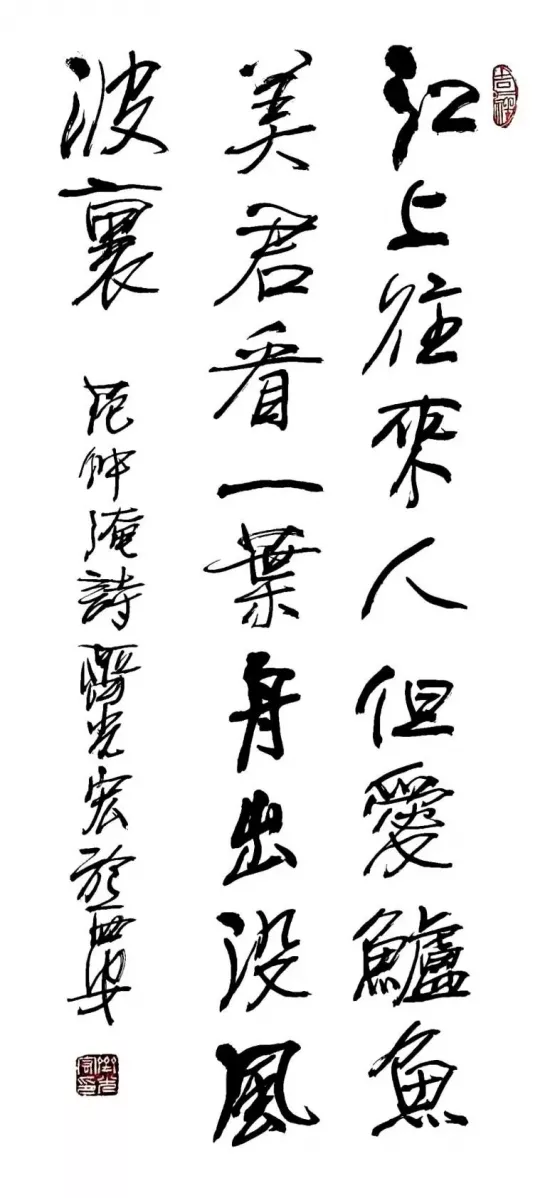 吉祥
江上往來人但愛鱸魚
美君看一葉舟出没風
波裏
范仲淹詩 光宏於西安